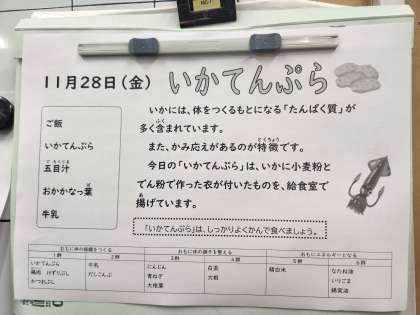 11月28日(金) いかてんぷら
ご飯
いかてんぷら
五目汁
おかかなっ葉
牛乳
いかには、体をつくるもとになる「たんぱく質」が
多く含まれています。
また、かみ応えがあるのが特徴です。
今日の「いかてんぷら」は、いかに小麦粉と
でん粉で作った衣が付いたものを、給食室で
揚げています。
「いかてんぷら」は、しっかりよくかんで食べましょう。
おもに体の組織をつくる おもに体の調子を整える おもにエネルギーとなる
1群 2群 3群 4群 5群 6群
いかてんぷら 牛乳 にんじん 白菜 精白米 なたね油
鶏肉 けずりぶし だしこんぶ 青ねぎ 大根 いりごま
かつおぶし 大根葉 綿実油